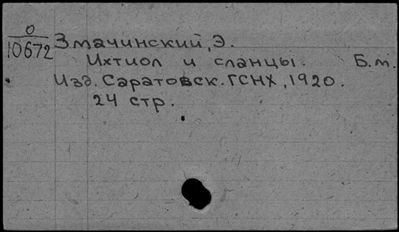 О
10672
Змачинский, Э.
Ихтиол и сланцы. Б.м.
Изд. Саратовск. ГСНХ, 1920.
24 стр.